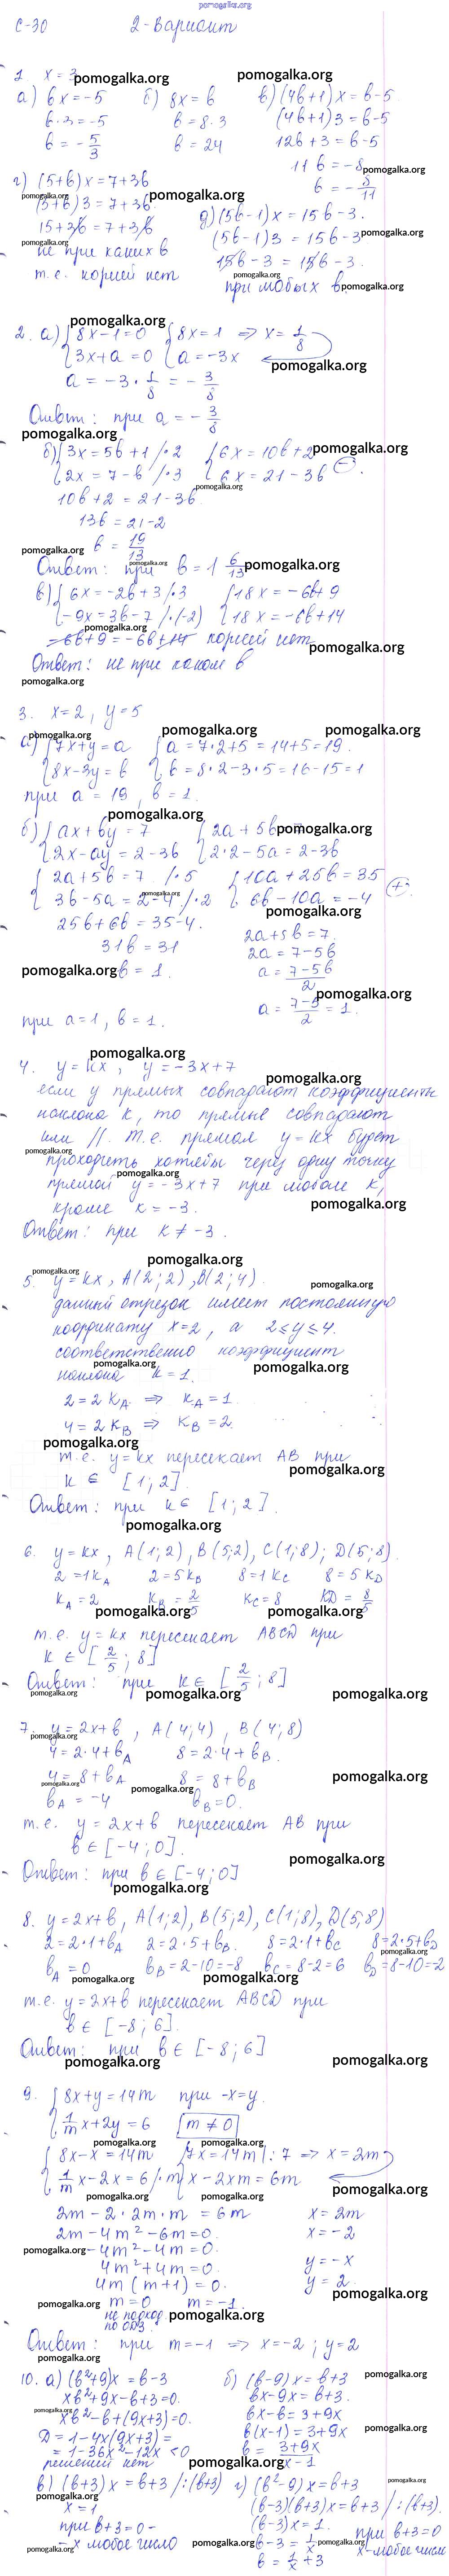 pomogalka.org
С-30 2-Вариант
1. x = 3
а) bx = -5 б) 8x = b в) (4b+1)x = b-5
b·3 = -5 b = 8·3 (4b+1)3 = b-5
b = -5/3 b = 24 12b+3 = b-5
11b = -8
b = -8/11
г) (5+b)x = 7+3b
(5+b)3 = 7+3b
15+3b = 7+3b
не при каких b
т.е. корней нет
д) (5b-1)x = 15b-3.
(5b-1)3 = 15b-3
15b-3 = 15b-3.
при любых b.
2. а) { 8x-1=0 { 8x=1 => x = 1/8
{ 3x+a=0 { a = -3x
a = -3·1/8 = -3/8
Ответ: при a = -3/8
б) { 3x = 5b+1 /·2 { 6x = 10b+2
{ 2x = 7-b /·3 { 6x = 21-3b (-)
10b+2 = 21-3b
13b = 21-2
b = 19/13
Ответ: при b = 1 6/13
в) { 6x = -2b+3 /·3 { 18x = -6b+9
{ -9x = 3b-7 /·(-2) { 18x = -6b+14
-6b+9 = -6b+14 корней нет
Ответ: не при каком b
3. x=2, y=5
а) { 7x+y=a { a = 7·2+5 = 14+5 = 19.
{ 8x-3y=b { b = 8·2-3·5 = 16-15 = 1
при a = 19, b = 1.
б) { ax+by = 7 { 2a+5b = 7
{ 2x-ay = 2-3b { 2·2-5a = 2-3b
{ 2a+5b = 7 /·5 { 10a+25b = 35
{ 3b-5a = 2-4 /·2 { 6b-10a = -4 (+)
25b+6b = 35-4.
31b = 31
b = 1.
2a+5b = 7.
2a = 7-5b
a = (7-5b)/2
a = (7-5)/2 = 1.
при a=1, b=1.
4. y = kx, y = -3x+7
если у прямых совпадают коэффициенты
наклона k, то прямые совпадают
или //. т.е. прямая y=kx будет
проходить хотябы через одну точку
прямой y = -3x+7 при любом k,
кроме k = -3.
Ответ: при k ≠ -3.
5. y = kx, A(2;2), B(2;4).
данный отрезок имеет постоянную
координату x=2, а 2≤y≤4.
соответственно коэффициент
наклона k = 1.
2 = 2kA => kA = 1.
4 = 2kB => kB = 2.
т.е. y=kx пересекает AB при
k ∈ [1;2].
Ответ: при k ∈ [1;2].
6. y=kx, A(1;2), B(5;2), C(1;8); D(5;8).
2 = 1kA 2 = 5kB 8 = 1kC 8 = 5kD
kA = 2 kB = 2/5 kC = 8 kD = 8/5
т.е. y=kx пересекает ABCD при
k ∈ [2/5; 8]
Ответ: при k ∈ [2/5; 8]
7. y = 2x+b, A(4;4), B(4;8)
4 = 2·4+bA 8 = 2·4+bB.
4 = 8+bA 8 = 8+bB
bA = -4 bB = 0.
т.е. y = 2x+b пересекает AB при
b ∈ [-4;0].
Ответ: при b ∈ [-4;0]
8. y = 2x+b, A(1;2), B(5;2), C(1;8), D(5;8)
2 = 2·1+bA 2 = 2·5+bB. 8 = 2·1+bC 8 = 2·5+bD
bA = 0 bB = 2-10 = -8 bC = 8-2 = 6 bD = 8-10 = -2
т.е. y = 2x+b пересекает ABCD при
b ∈ [-8;6].
Ответ: при b ∈ [-8;6]
9. { 8x+y = 14m при -x=y.
{ 1/m x+2y = 6 m ≠ 0
{ 8x-x = 14m { 7x = 14m |:7 => x = 2m
{ 1/m x-2x = 6 /·m { x-2xm = 6m
2m-2·2m·m = 6m x = 2m
2m-4m²-6m = 0. x = -2
-4m²-4m = 0. y = -x
4m²+4m = 0. y = 2.
4m(m+1) = 0.
m = 0 m = -1.
не подход.
по ОДЗ.
Ответ: при m = -1 => x = -2; y = 2
10. а) (b²+9)x = b-3 б) (b-9)x = b+3
xb²+9x-b+3 = 0. bx-9x = b+3.
xb²-b+(9x+3) = 0. bx-b = 3+9x
D = 1-4x(9x+3) = b(x-1) = 3+9x
= 1-36x²-12x < 0 b = (3+9x)/(x-1)
решений нет
в) (b+3)x = b+3 /:(b+3) г) (b²-9)x = b+3
x = 1 (b-3)(b+3)x = b+3 /:(b+3).
при b+3=0 - (b-3)x = 1.
- x любое число b-3 = 1/x при b+3=0
b = 1/x+3 x-любое число